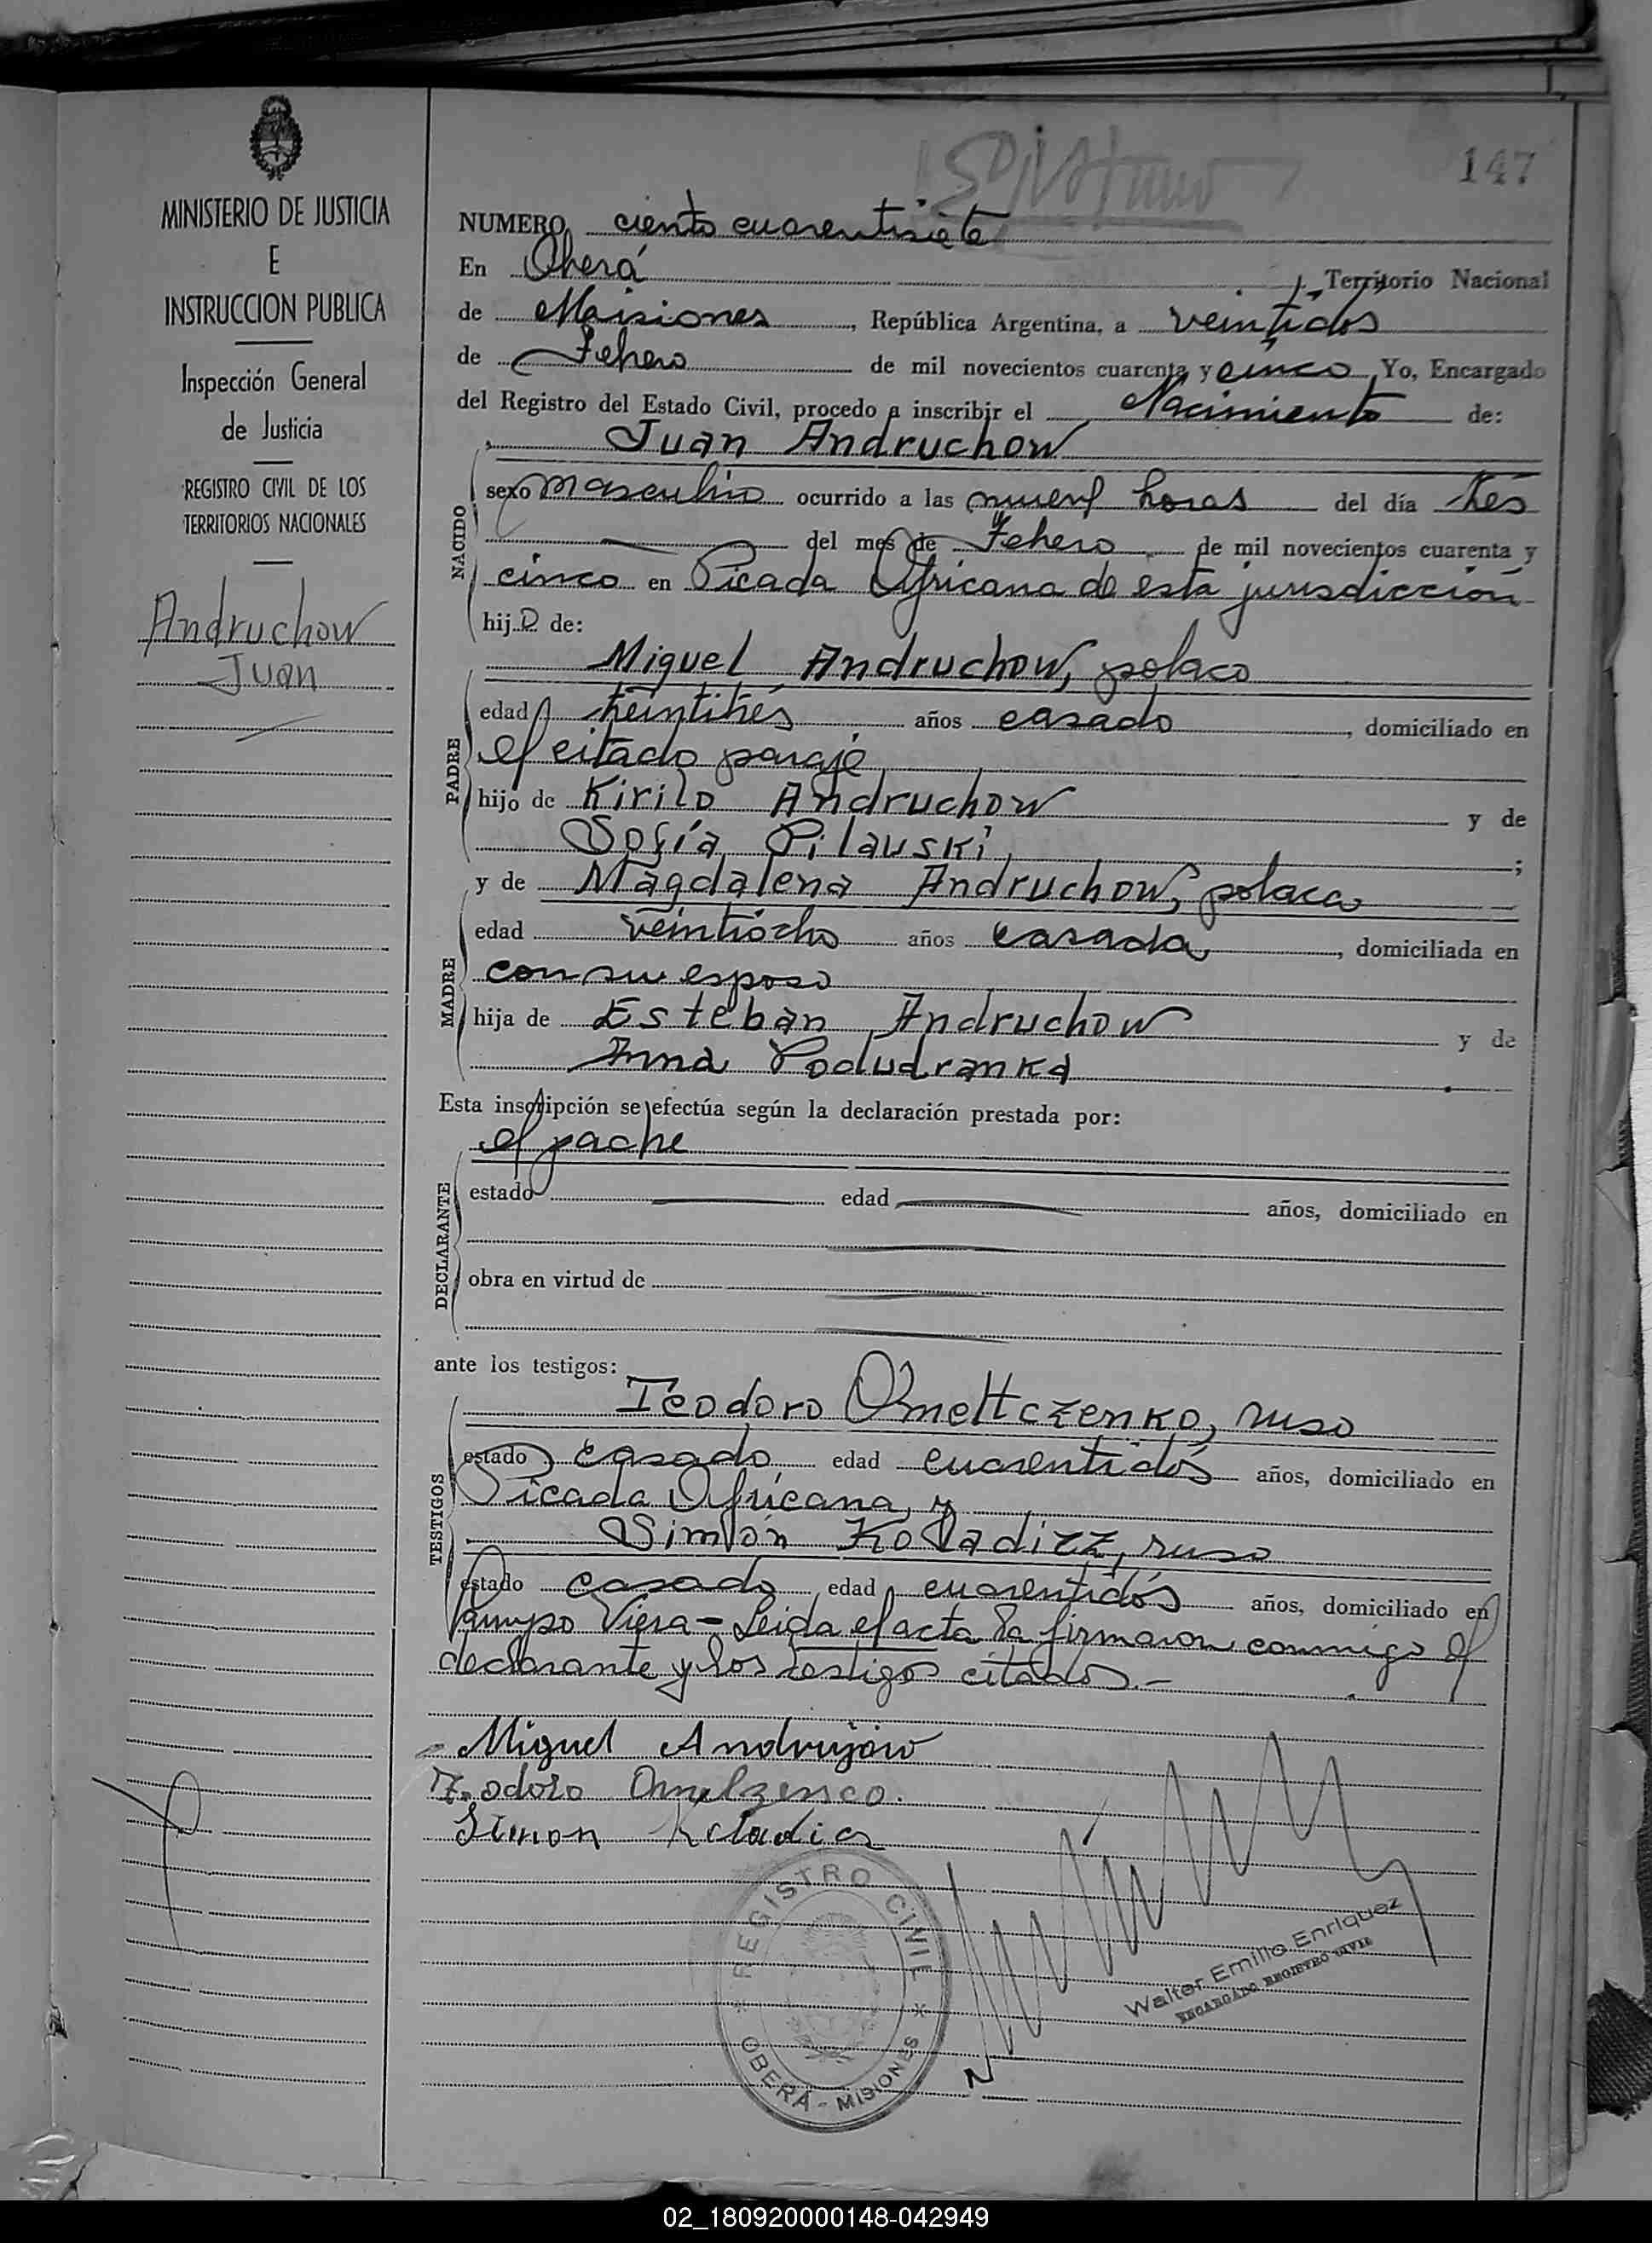 147
MINISTERIO DE JUSTICIA
E
INSTRUCCION PUBLICA
Inspección General
de Justicia
REGISTRO CIVIL DE LOS
TERRITORIOS NACIONALES
Andruchow
Juan
NUMERO ciento cuarentisiete
En Oberá, Territorio Nacional
de Misiones, República Argentina, a veintidós
de Febrero de mil novecientos cuarenta y cinco, Yo, Encargado
del Registro del Estado Civil, procedo a inscribir el Nacimiento de:
Juan Andruchow
NACIDO
sexo masculino ocurrido a las nueve horas del día tres
del mes de Febrero de mil novecientos cuarenta y
cinco en Picada Africana de esta jurisdicción
hijo de:
Miguel Andruchow, polaco
PADRE
edad treintitrés años casado, domiciliado en
el citado paraje
hijo de Kirilo Andruchow y de
Sofía Pilauski;
y de Magdalena Andruchow, polaca
MADRE
edad veintiocho años casada, domiciliada en
con su esposo
hija de Esteban Andruchow y de
Anna Podudranka.
Esta inscripción se efectúa según la declaración prestada por:
el padre
DECLARANTE
estado edad años, domiciliado en
obra en virtud de
ante los testigos:
Teodoro Omeltczenko, ruso
TESTIGOS
estado casado, edad cuarentidós años, domiciliado en
Picada Africana, y
Simón Koladizz, ruso
estado casado edad cuarentidós años, domiciliado en
Campo Viera - Leida el acta la firmaron conmigo el
declarante y los testigos citados.-
Miguel Andrujow
Teodoro Omelzenco.
Simon Koladicz
REGISTRO CIVIL
OBERÁ - MISIONES
Walter Emilio Enriquez
ENCARGADO REGISTRO CIVIL
02_180920000148-042949